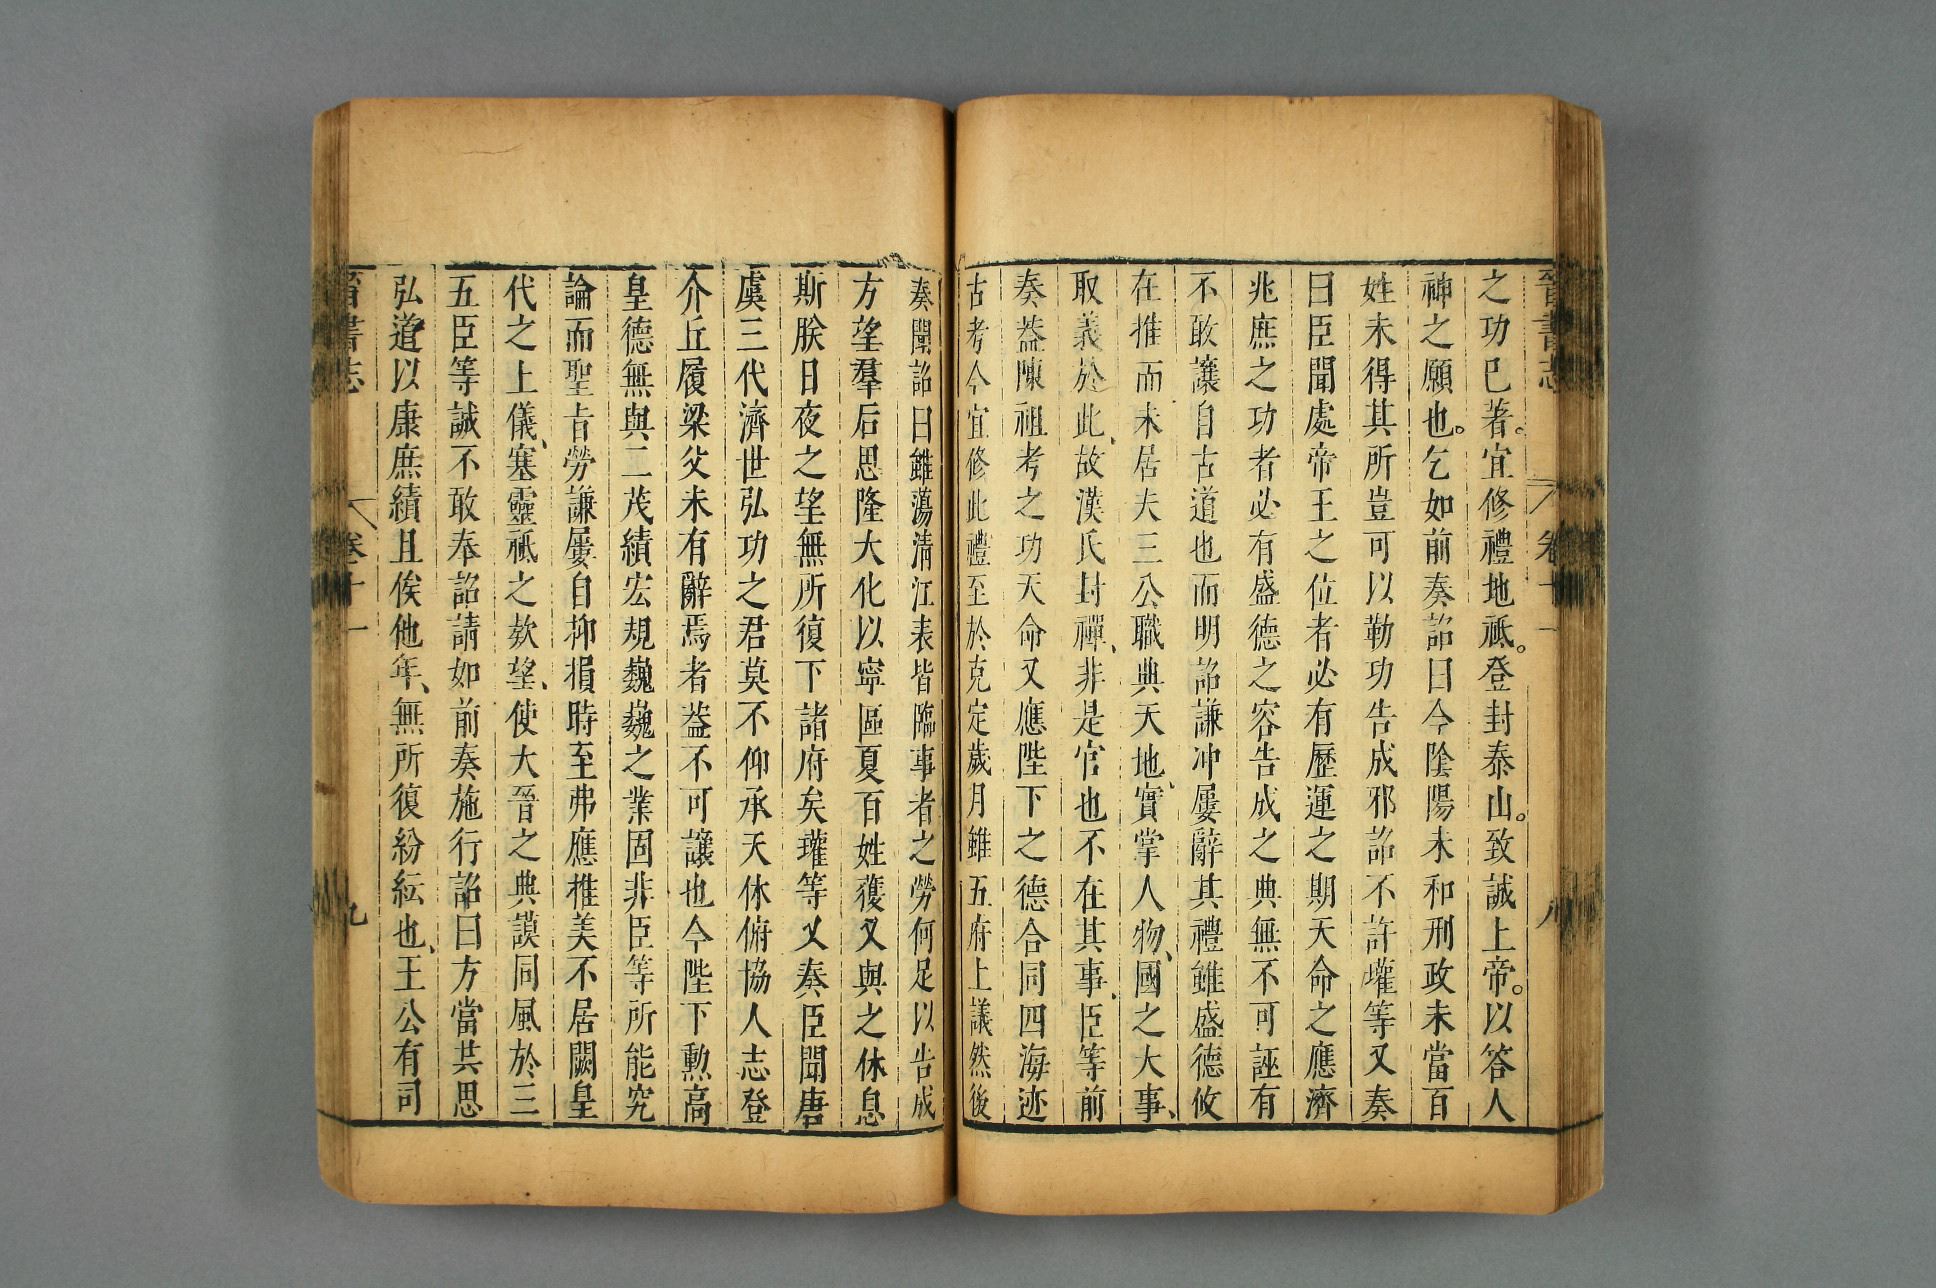 晉書志 卷十一 八
之功已著。宜修禮地祗。登封泰山。致誠上帝。以答人
神之願也。乞如前奏詔曰今陰陽未和刑政未當百
姓未得其所豈可以勒功告成邪詔不許瓘等又奏
曰臣聞處帝王之位者必有歷運之期天命之應濟
兆庶之功者必有盛德之容告成之典無不可誣有
不敢讓自古道也而明詔謙冲屢辭其禮雖盛德攸
在推而未居夫三公職典天地、實掌人物、國之大事、
取義於此、故漢氏封禪、非是官也不在其事、臣等前
奏葢陳祖考之功天命又應陛下之德合同四海迹
古考今宜修此禮至於克定歲月雖五府上議然後
奏聞詔曰雖蕩清江表皆臨事者之勞何足以告成
方望羣后思隆大化以寧區夏百姓獲乂與之休息
斯朕日夜之望無所復下諸府矣瓘等又奏臣聞唐
虞三代濟世弘功之君莫不仰承天休俯協人志登
介丘履梁父未有辭焉者葢不可讓也今陛下勲高
皇德無與二茂績宏規巍巍之業固非臣等所能究
論而聖旨勞謙屢自抑損時至弗應推美不居闕皇
代之上儀、塞靈祗之欵望、使大晉之典謨同風於三
五臣等誠不敢奉詔請如前奏施行詔曰方當共思
弘道以康庶績且俟他年、無所復紛紜也、王公有司
晉書志 卷十一 九